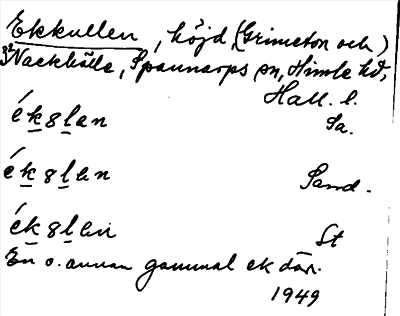 Ekkullen, höjd, (Grimeton och)
32 Nackhälle, Spannarps sn, Himle hd,
Hall. l.
ékslan Sa.
ékslen Sand.
ékslen St
En o. annan gammal ek där.
1949